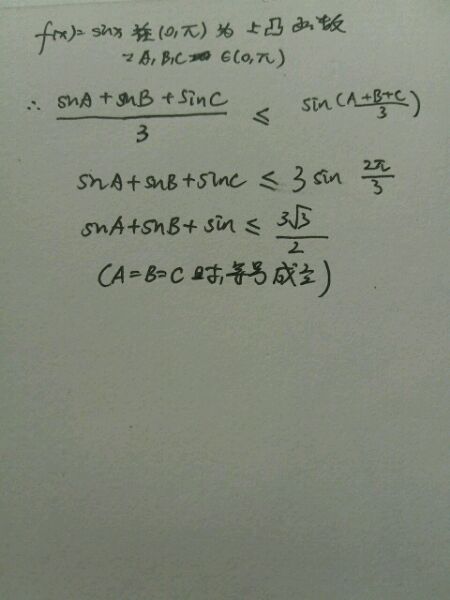 f(x)=sinx 在(0,π)为上凸函数
∵A,B,C ∈(0,π)
∴ (sinA+sinB+sinC)/3 ≤ sin((A+B+C)/3)
sinA+sinB+sinC ≤ 3 sin 2π/3
sinA+sinB+sin ≤ 3√3/2
(A=B=C时,等号成立)